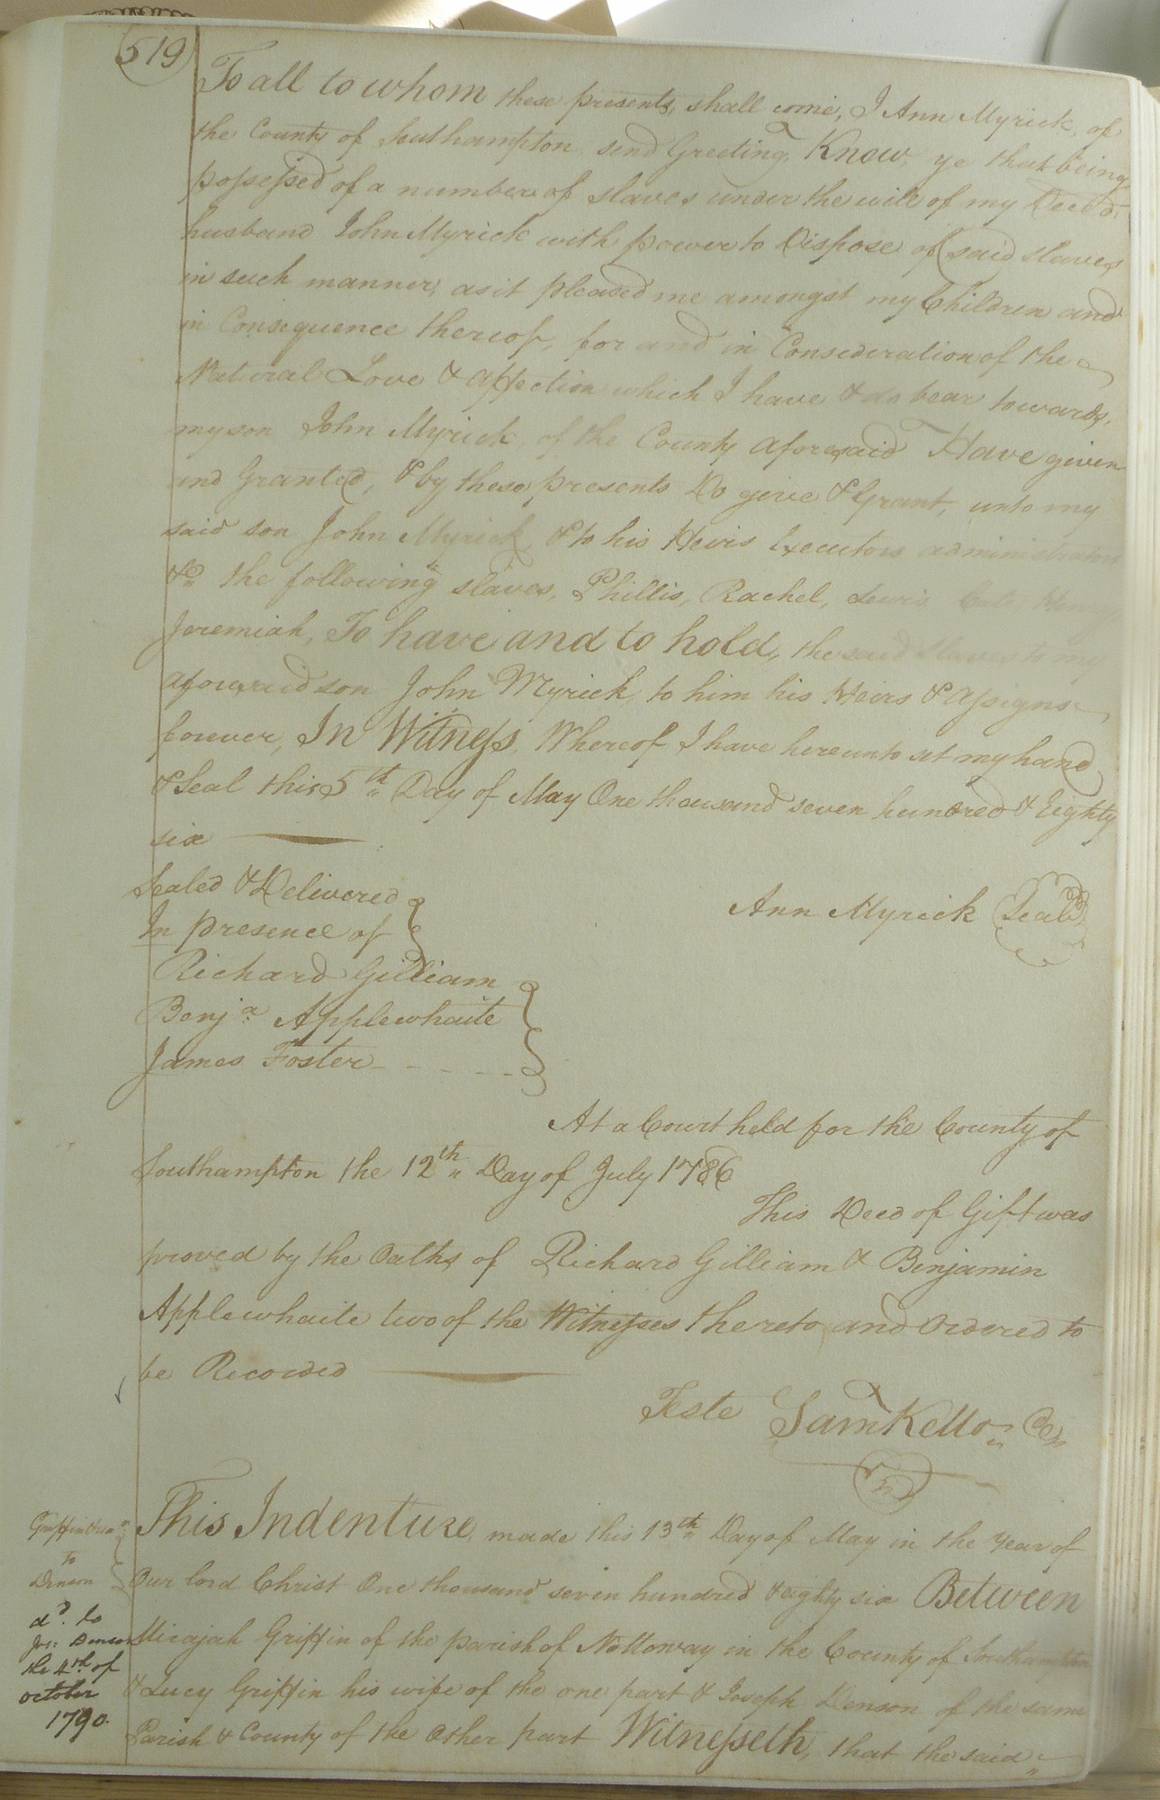 519
To all to whom these presents, shall come, I Ann Myrick, of
the County of Southampton send Greeting, Know ye that being
possessed of a number of slaves under the will of my Deced.
husband John Myrick with power to Dispose of said slaves
in such manner, as it pleased me amongst my Children and
in Consequence thereof, for and in Consideration of the
Natural Love & affection which I have & do bear towards,
my son John Myrick, of the County aforesaid Have given
and Granted, & by these presents Do give & Grant, unto my
said son John Myrick, & to his Heirs Executors administrators
&c the following slaves, Phillis, Rachel, Lewis
Jeremiah, To have and to hold, the said slaves to my
aforesaid son John Myrick, to him his Heirs & assigns
forever, In Witness Whereof I have hereunto set my hand
& Seal this 5th Day of May One thousand seven hundred & Eighty
six
Sealed & Delivered
In presence of
Ann Myrick Seal
Richard Gilliam
Benja. Applewhaite
James Foster
At a Court held for the County of
Southampton the 12th Day of July 1786
This Deed of Gift was
proved by the Oaths of Richard Gilliam & Benjamin
Applewhaite two of the Witnesses thereto and Ordered to
be Recorded
Teste Saml Kello
Griffin
to
Denson
dd. to
Jos: Denson
the 4th of
october
1790.
This Indenture, made this 13th Day of May in the Year of
Our lord Christ One thousand seven hundred & eighty six Between
Micajah Griffin of the parish of Nottoway in the County of Southampton
& Lucy Griffin his wife of the one part & Joseph Denson of the same
Parish & County of the Other part Witnesseth, that the said